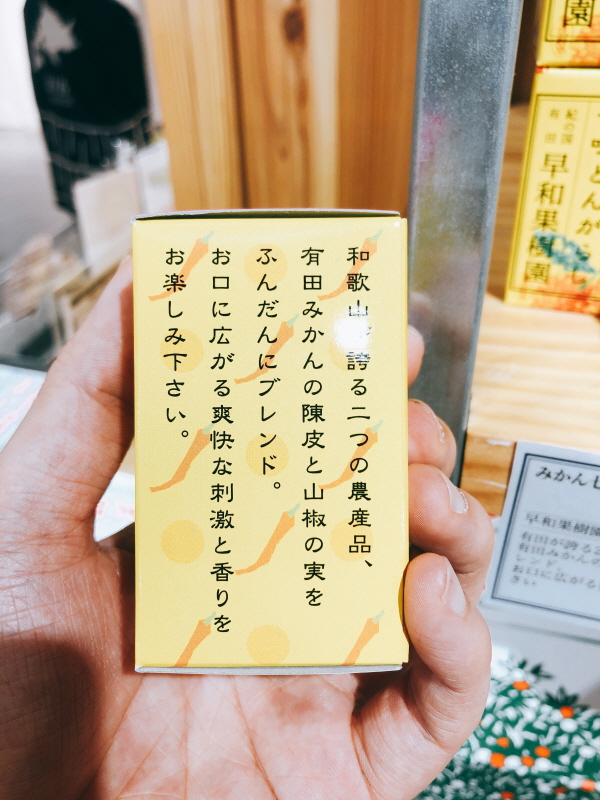 和歌山が誇る二つの農産品、
有田みかんの陳皮と山椒の実を
ふんだんにブレンド。
お口に広がる爽快な刺激と香りを
お楽しみ下さい。
園
紀の国
有田
早和果樹園
みかん
早和果樹園
有田が誇る
有田みかんの
レンド
お口に広がる
さい